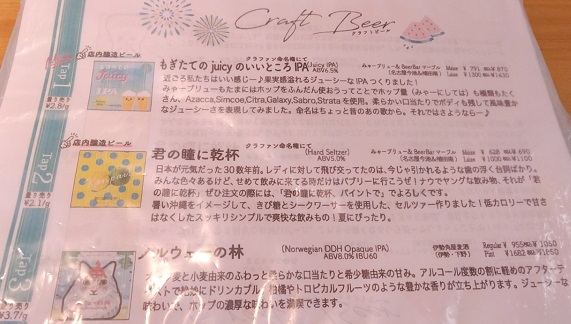 Craft Beer
クラフトビール
店内醸造ビール
クラファン命名権にて
Tap1
量り売り
¥2.8/g
もぎたてのjuicyのいいところIPA(Juicy IPA)
ABV6.5%
みゃーブリュー& BeerBar マーブル
(名古屋今池&植田南)
近ごろ私たちはいい感じ♪果実感溢れるジューシーなIPAつくりました!
みゃーブリューもたまにはホップをふんだん使おうってことでホップ量(みゃーにしては)も種類もたく
さん、Azacca,Simcoe,Citra,Galaxy,Sabro,Strataを使用。柔らかい口当たりでボディも残して風味豊か
なジューシーさを表現してみました。命名はちょっと昔のあの歌から。それではさような~♪
店内醸造ビール
クラファン命名権にて
Tap2
量り売り
¥2.1/g
君の瞳に乾杯
(Hard Seltzer)
ABV5.0%
みゃーブリュー& BeerBar マーブル
(名古屋今池&植田南)
日本が元気だった30数年前。レディに対して飛び交ってたのは、今じゃ引かれるような歯の浮く台詞ばかり。
みんな色々あるけど、せめて飲みに来てる時だけはバブリーに行こうぜ!ナウでヤングな飲み物、それが「君
の瞳に乾杯」!ご注文の際には、「君の瞳に乾杯、パイントで」でよろしくです。
暑い沖縄をイメージして、きび糖とシークワーサーを使用した、セルツァー作りました!低カロリーで甘さ
はなくしたスッキリシンプルで爽快な飲みもの!夏にぴったり。
Tap3
量り売り
¥3.7/g
ノルウェーの林
(Norwegian DDH Opaque IPA)
ABV8.0% IBU60
伊勢角屋麦酒
(伊勢・下野)
Regular ¥ 955
Pint ¥1682
麦と小麦由来のふわっと柔らかな口当たりと希少糖由来の甘み。アルコール度数の割に軽めのアフターテ
ストで絶妙にドリンカブル。柑橘やトロピカルフルーツのような豊かな香りが立ち上がります。ジューシーな
味わいで、ホップの濃厚な味わいを満喫できます。